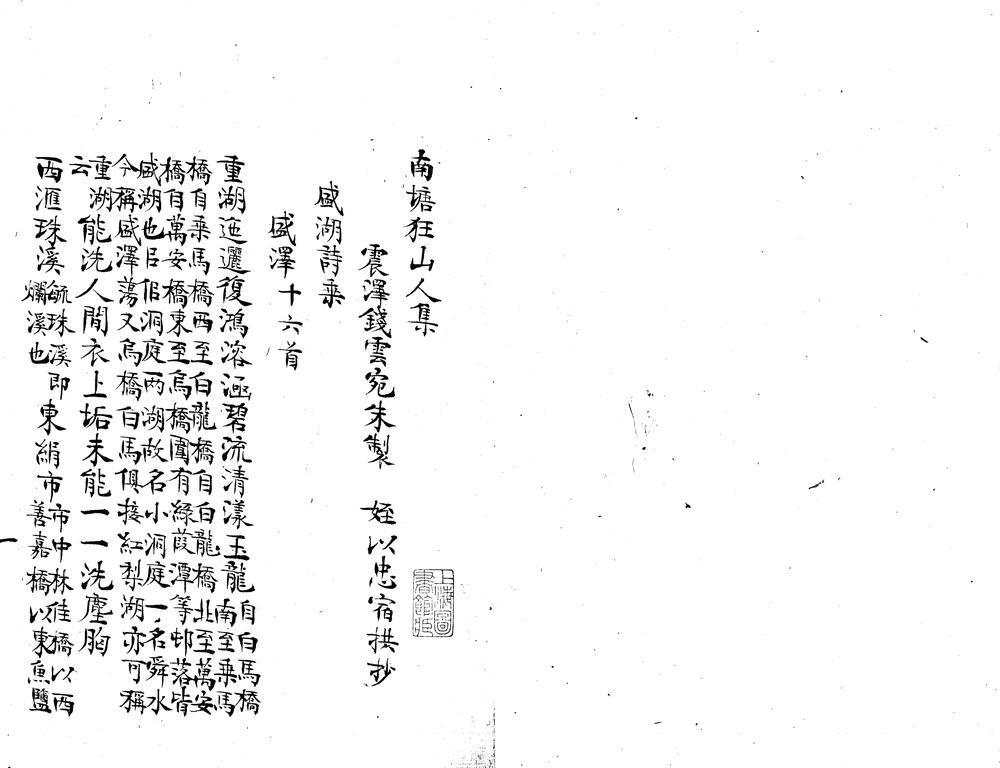 南塘狂山人集
震澤錢雲宛朱製　姪以忠宿拱抄
上海圖書館藏
盛湖詩乘
盛澤十六首
重湖迤邐復鴻溶涵碧流清漾玉龍自白馬橋南至乘馬
橋自乘馬橋西至白龍橋自白龍橋北至萬安
橋自萬安橋東至烏橋圍有綠葭潭等邨落皆
盛湖也臣佀洞庭兩湖故名小洞庭一名舜水
今稱盛澤蕩又烏橋白馬俱接紅梨湖亦可稱
重湖云能洗人間衣上垢未能一一洗塵胸
西滙珠溪毓珠溪即爛溪也東絹市市中林佳橋以西善嘉橋以東魚鹽
一